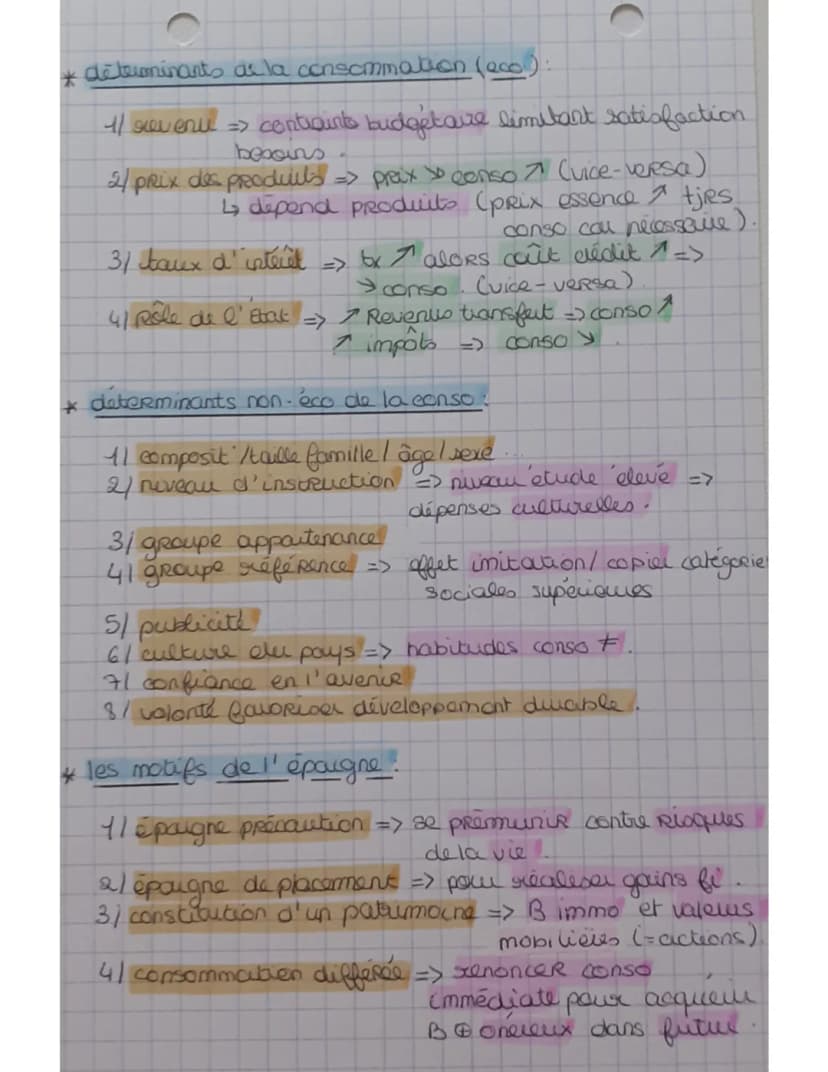 * déterminants de la consommation (eco) :
1/ revenu => contrainte budgétaire limitant satisfaction
besoins.
2/ prix des produits => prix ↘ conso ↗ (vice-versa)
↳ dépend produits (prix essence ↗ tjrs
conso car nécessaire).
3/ taux d'intérêt => tx ↗ alors coût crédit ↗ =>
↘ conso. (vice-versa)
4/ Rôle de l'Etat => ↗ Revenus transfert => conso ↗
↗ impôts => conso ↘.
* déterminants non-éco de la conso :
1/ composit°/taille famille / âge / sexe ...
2/ niveau d'instruction => niveau étude élevé =>
dépenses culturelles.
3/ groupe appartenance
4/ groupe référence => effet imitation / copier catégorie
sociales supérieures
5/ publicité
6/ culture du pays => habitudes conso ≠.
7/ confiance en l'avenir
8/ volonté favoriser développement durable.
* les motifs de l'épargne :
1/ épargne précaution => se prémunir contre risques
de la vie.
2/ épargne de placement => pour réaliser gains fi.
3/ constitution d'un patrimoine => B immo et valeurs
mobilières (=actions)
4/ consommation différée => renoncer conso
immédiate pour acquérir
B ⊕ onéreux dans futur.